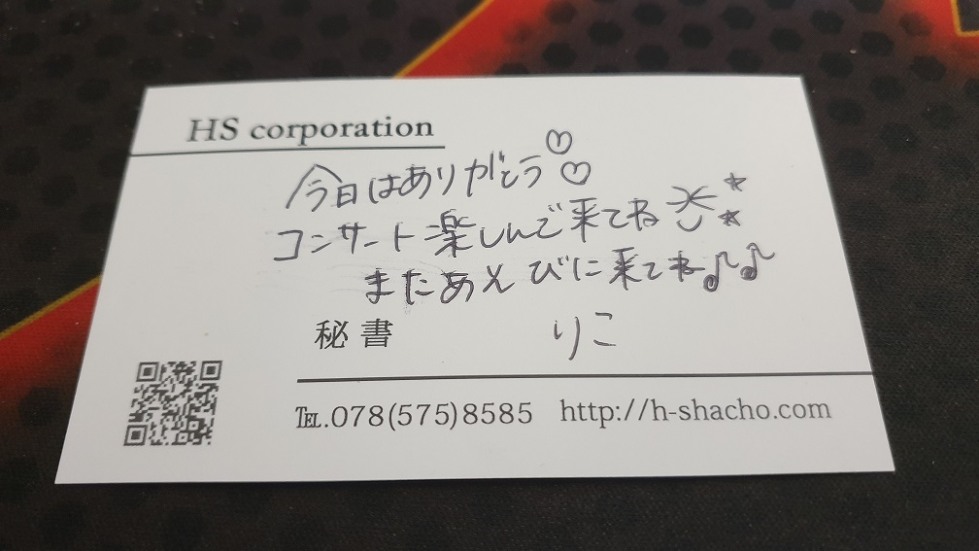 HS corporation
今日はありがとう♡♡
コンサート楽しんで来てね
またあそびに来てね♪♪
秘書 りこ
TEL.078(575)8585 http://h-shacho.com